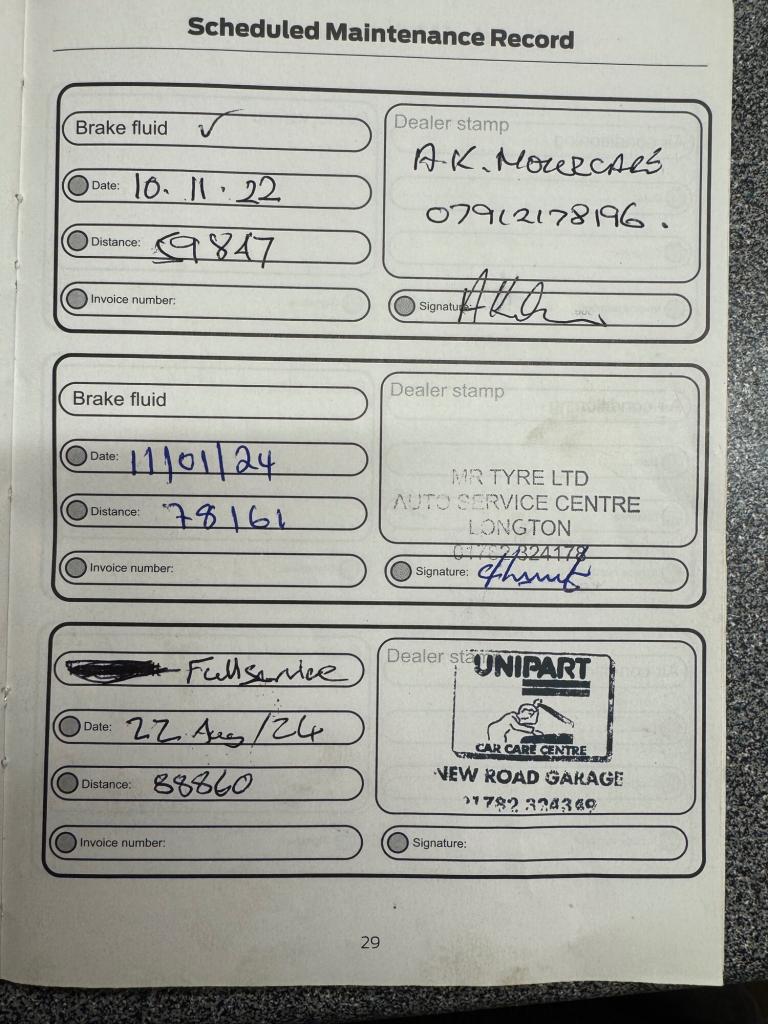 Scheduled Maintenance Record
Brake fluid ✓
Date: 10.11.22
Distance: 59847
Invoice number:
Dealer stamp
A.K.
07912178196.
Signature:
Brake fluid
Date: 11/01/24
Distance: 78161
Invoice number:
Dealer stamp
MR TYRE LTD
AUTO SERVICE CENTRE
LONGTON
01782 324178
Signature:
Full service
Date: 22 Aug/24
Distance: 88860
Invoice number:
Dealer stamp
UNIPART
CAR CARE CENTRE
NEW ROAD GARAGE
01782 324349
Signature:
29